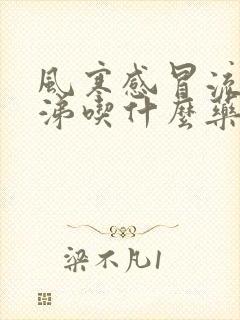 風寒感冒流
涕喫什麼藥
梁不凡1